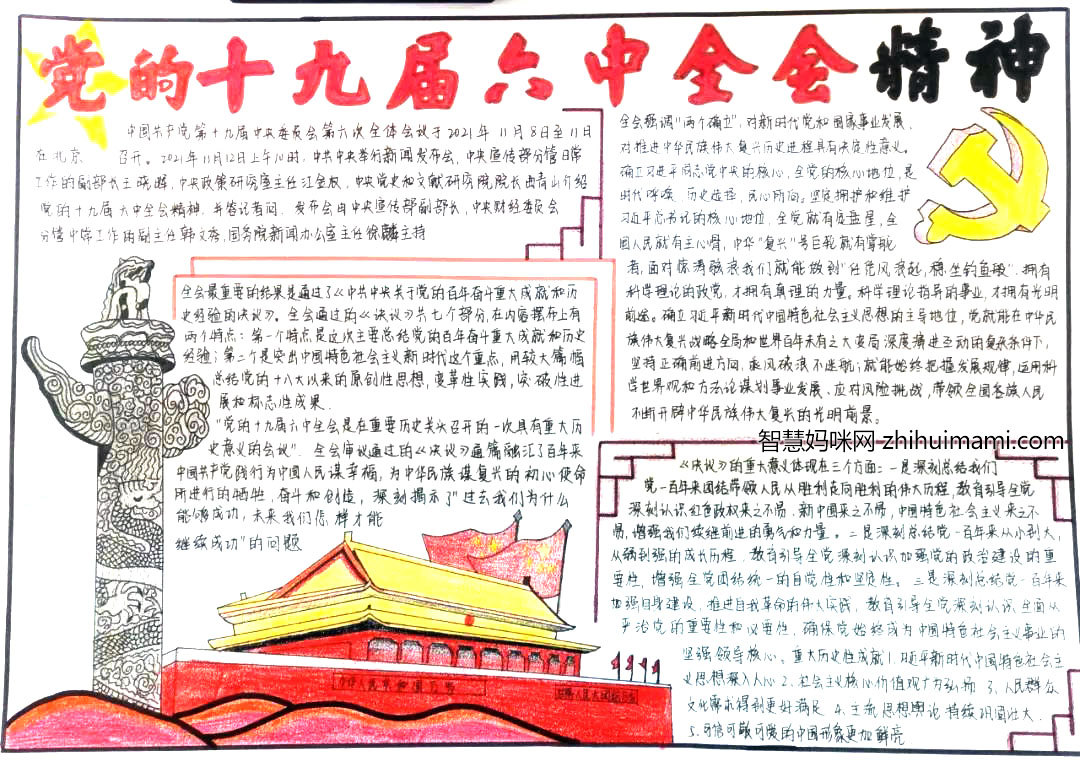 党的十九届六中全会精神
中国共产党第十九届中央委员会第六次全体会议于2021年11月8日至11日
在北京 召开。2021年11月12日上午10时,中共中央举行新闻发布会,中央宣传部分管日常
工作的副部长王晓晖,中央政策研究室主任江金权,中央党史和文献研究院院长曲青山介绍
党的十九届六中全会精神.并答记者问.发布会由中央宣传部副部长,中央财经委员会
分管日常工作的副主任韩文秀,国务院新闻办公室主任徐麟主持
全会最重要的结果是通过了《中共中央关于党的百年奋斗重大成就和历
史经验的决议》。全会通过的《决议》共七个部分,在内容摆布上有
两个特点:第一个特点是这次主要总结党的百年奋斗重大成就和历史
经验;第二个是突出中国特色社会主义新时代这个重点,用较大篇幅
总结党的十八大以来的原创性思想,变革性实践,突破性进
展和标志性成果.
"党的十九届六中全会是在重要历史关头召开的一次具有重大历
史意义的会议".全会审议通过的《决议》通篇融汇了百年来
中国共产党践行为中国人民谋幸福,为中华民族谋复兴的初心使命
所进行的牺牲,奋斗和创造,深刻揭示了"过去我们为什么
能够成功,未来我们怎样才能
继续成功"的问题
全会强调"两个确立",对新时代党和国家事业发展、
对推进中华民族伟大复兴历史进程具有决定性意义。
确立习近平同志党中央的核心,全党的核心地位,是
时代呼唤、历史选择、民心所向。坚定拥护和维护
习近平总书记的核心地位,全党就有定盘星,全
国人民就有主心骨,中华"复兴"号巨轮就有掌舵
者,面对惊涛骇浪我们就能做到"任凭风浪起,稳坐钓鱼船".拥有
科学理论的政党,才拥有真理的力量。科学理论指导的事业,才拥有光明
前途。确立习近平新时代中国特色社会主义思想的主导地位,党就能在中华民
族伟大复兴战略全局和世界百年未有之大变局深度演进互动的复杂条件下,
坚持正确前进方向,乘风破浪不迷航;就能始终把握发展规律,运用科
学世界观和方法论谋划事业发展、应对风险挑战,带领全国各族人民
不断开辟中华民族伟大复兴的光明前景。
智慧妈咪网 zhihuimami.com
《决议》的重大意义体现在三个方面:一是深刻总结我们
党一百年来团结带领人民从胜利走向胜利的伟大历程,教育引导全党
深刻认识红色政权来之不易、新中国来之不易,中国特色社会主义来之不
易,增强我们继续前进的勇气和力量。二是深刻总结党一百年来从小到大,
从弱到强的成长历程,教育引导全党深刻认识加强党的政治建设的重
要性,增强全党团结统一的自觉性和坚定性。三是深刻总结党一百年来
加强自身建设,推进自我革命的伟大实践,教育引导全党深刻认识全面从
严治党的重要性和必要性,确保党始终成为中国特色社会主义事业的
坚强领导核心。重大历史性成就1.习近平新时代中国特色社会主
义思想深入人心2.社会主义核心价值观大力弘扬 3.人民群众
文化需求得到更好满足 4.主流思想舆论持续巩固壮大.
5.可信可敬可爱的中国形象更加鲜亮
中华人民共和国万岁
世界人民大团结万岁